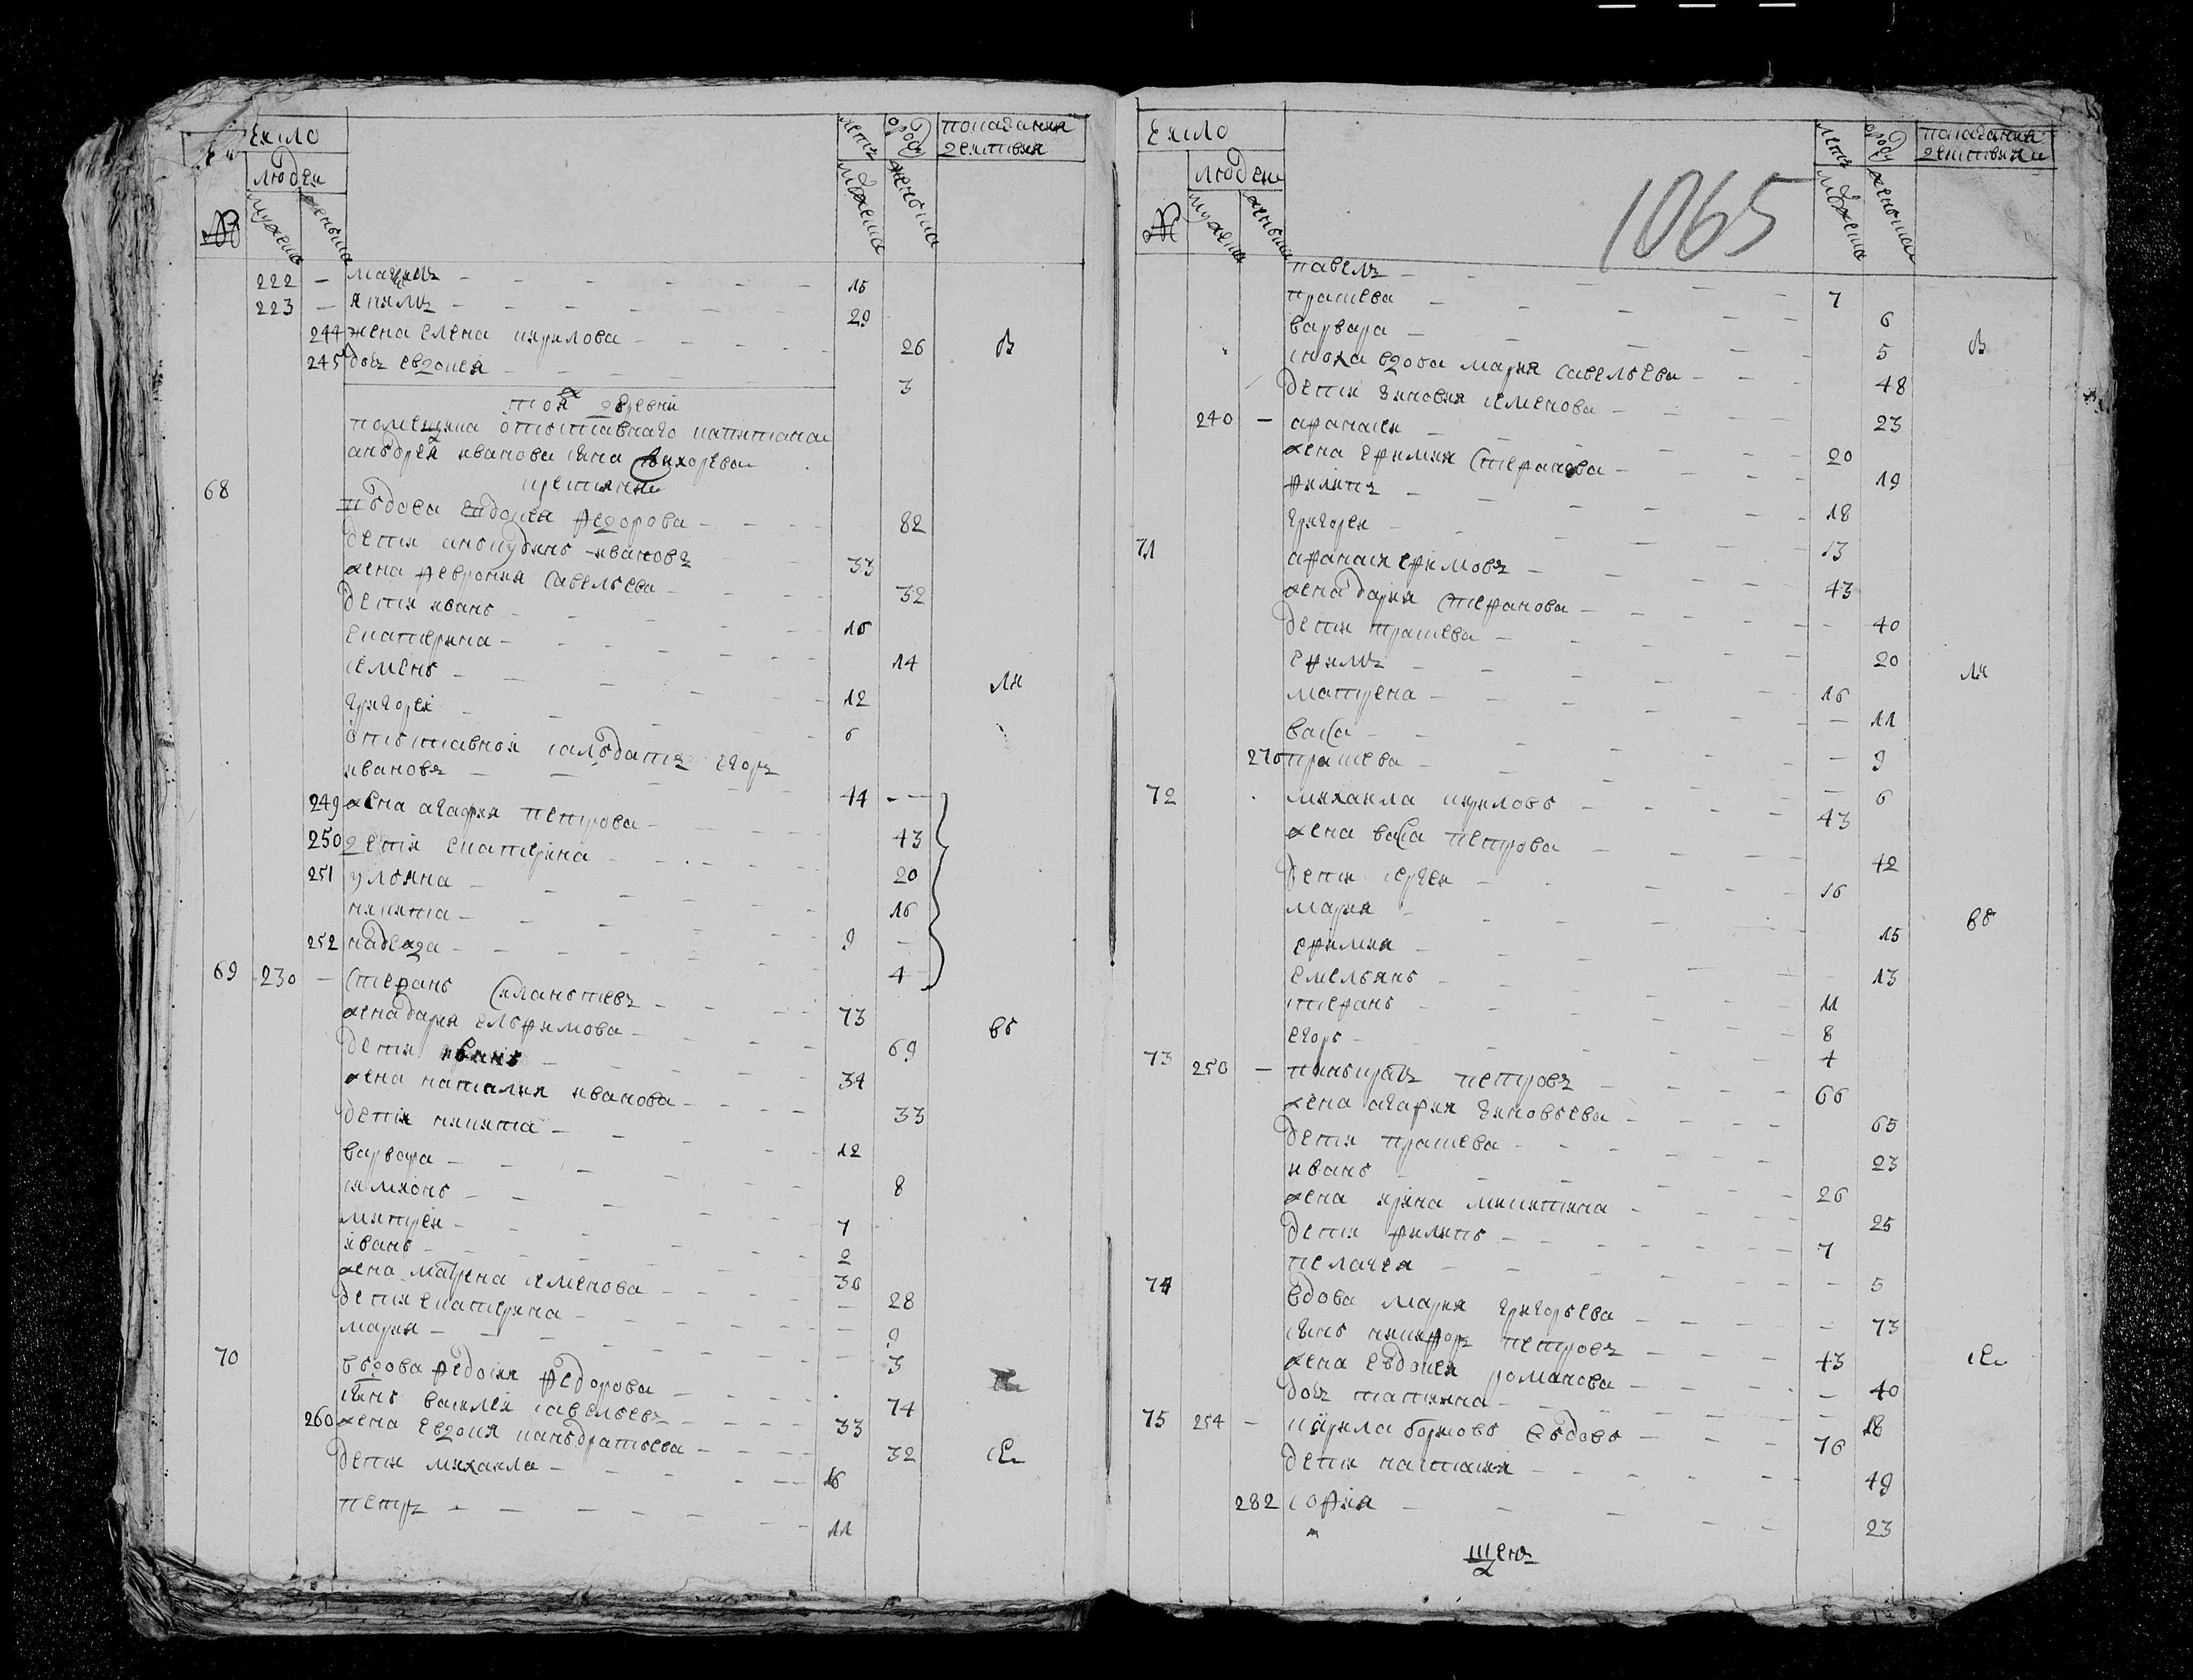 число
людеи
мужеска
женска
лета
мужеска
роду
женска
показания
действия
222 — 15
223 — якимъ — 29
244 жена елена кирилова — 26 в
245 дочь евдокея — 3
тоя ж деревни
помещика отставнаго капитана
андрея иванова сына
68 крестьяня
вдова евдокея федорова — 82
дети иванъ — 33
жена феврония савельева — 32
дети иванъ — 16
екатерина — 14
семенъ — 12 ли
григореи — 6
отставнои салдатъ егоръ
ивановъ — 44 —
249 жена агафия петрова — 43
250 дети екатерина — 20
251 ульяна — 16
никита — 9 —
252 надежда — 4
69 230 — стефанъ — 73
жена дария ельфимова — 69 въ
дети иванъ — 34
жена наталия иванова — 33
дети никита — 12
варвара — 8
симионъ — 7
митреи — 2
иванъ — 30
жена матрена семенова — 28
дети екатерина — 9
мария — 3
70 въдова федосия федорова — 74
сынъ василеи савельевъ — 33
260 жена евдокия каньдратьева — 32 се
дети михаила — 16
петръ — 11
число
людеи
мужеска
женска
1065
лета
мужеска
роду
женска
показания
действия
павелъ — 7
прасковя — 6
варвара — 5 в
сноха вдова мария савельева — 48
дети зиновия семенова — 23
240 — афанасеи — 20
жена ефимия стефанова — 19
филипъ — 18
григореи — 13
71 афанасия ефимовъ — 43
жена дария стефанова — 40
дети прасковя — 20
ефимъ — 16 ли
матрена — 11
васса — 9
270 прасковя — 6
72 михаила кириловъ — 43
жена васса петрова — 42
дети сергеи — 16
мария — 15 въ
ефимия — 13
емельянъ — 11
стефанъ — 8
егоръ — 4
73 250 — панкратъ петровъ — 66
жена агафия зиновьева — 65
дети прасковя — 23
иванъ — 26
жена ирина микитина — 25
дети филипъ — 7
пелагея — 5
74 вдова мария григорьева — 73
сынъ никифоръ петровъ — 43 се
жена евдокея романова — 40
дочь татияна — 18
75 254 — кирила борисовъ въдовъ — 76
дети настасия — 49
282 софия — 23